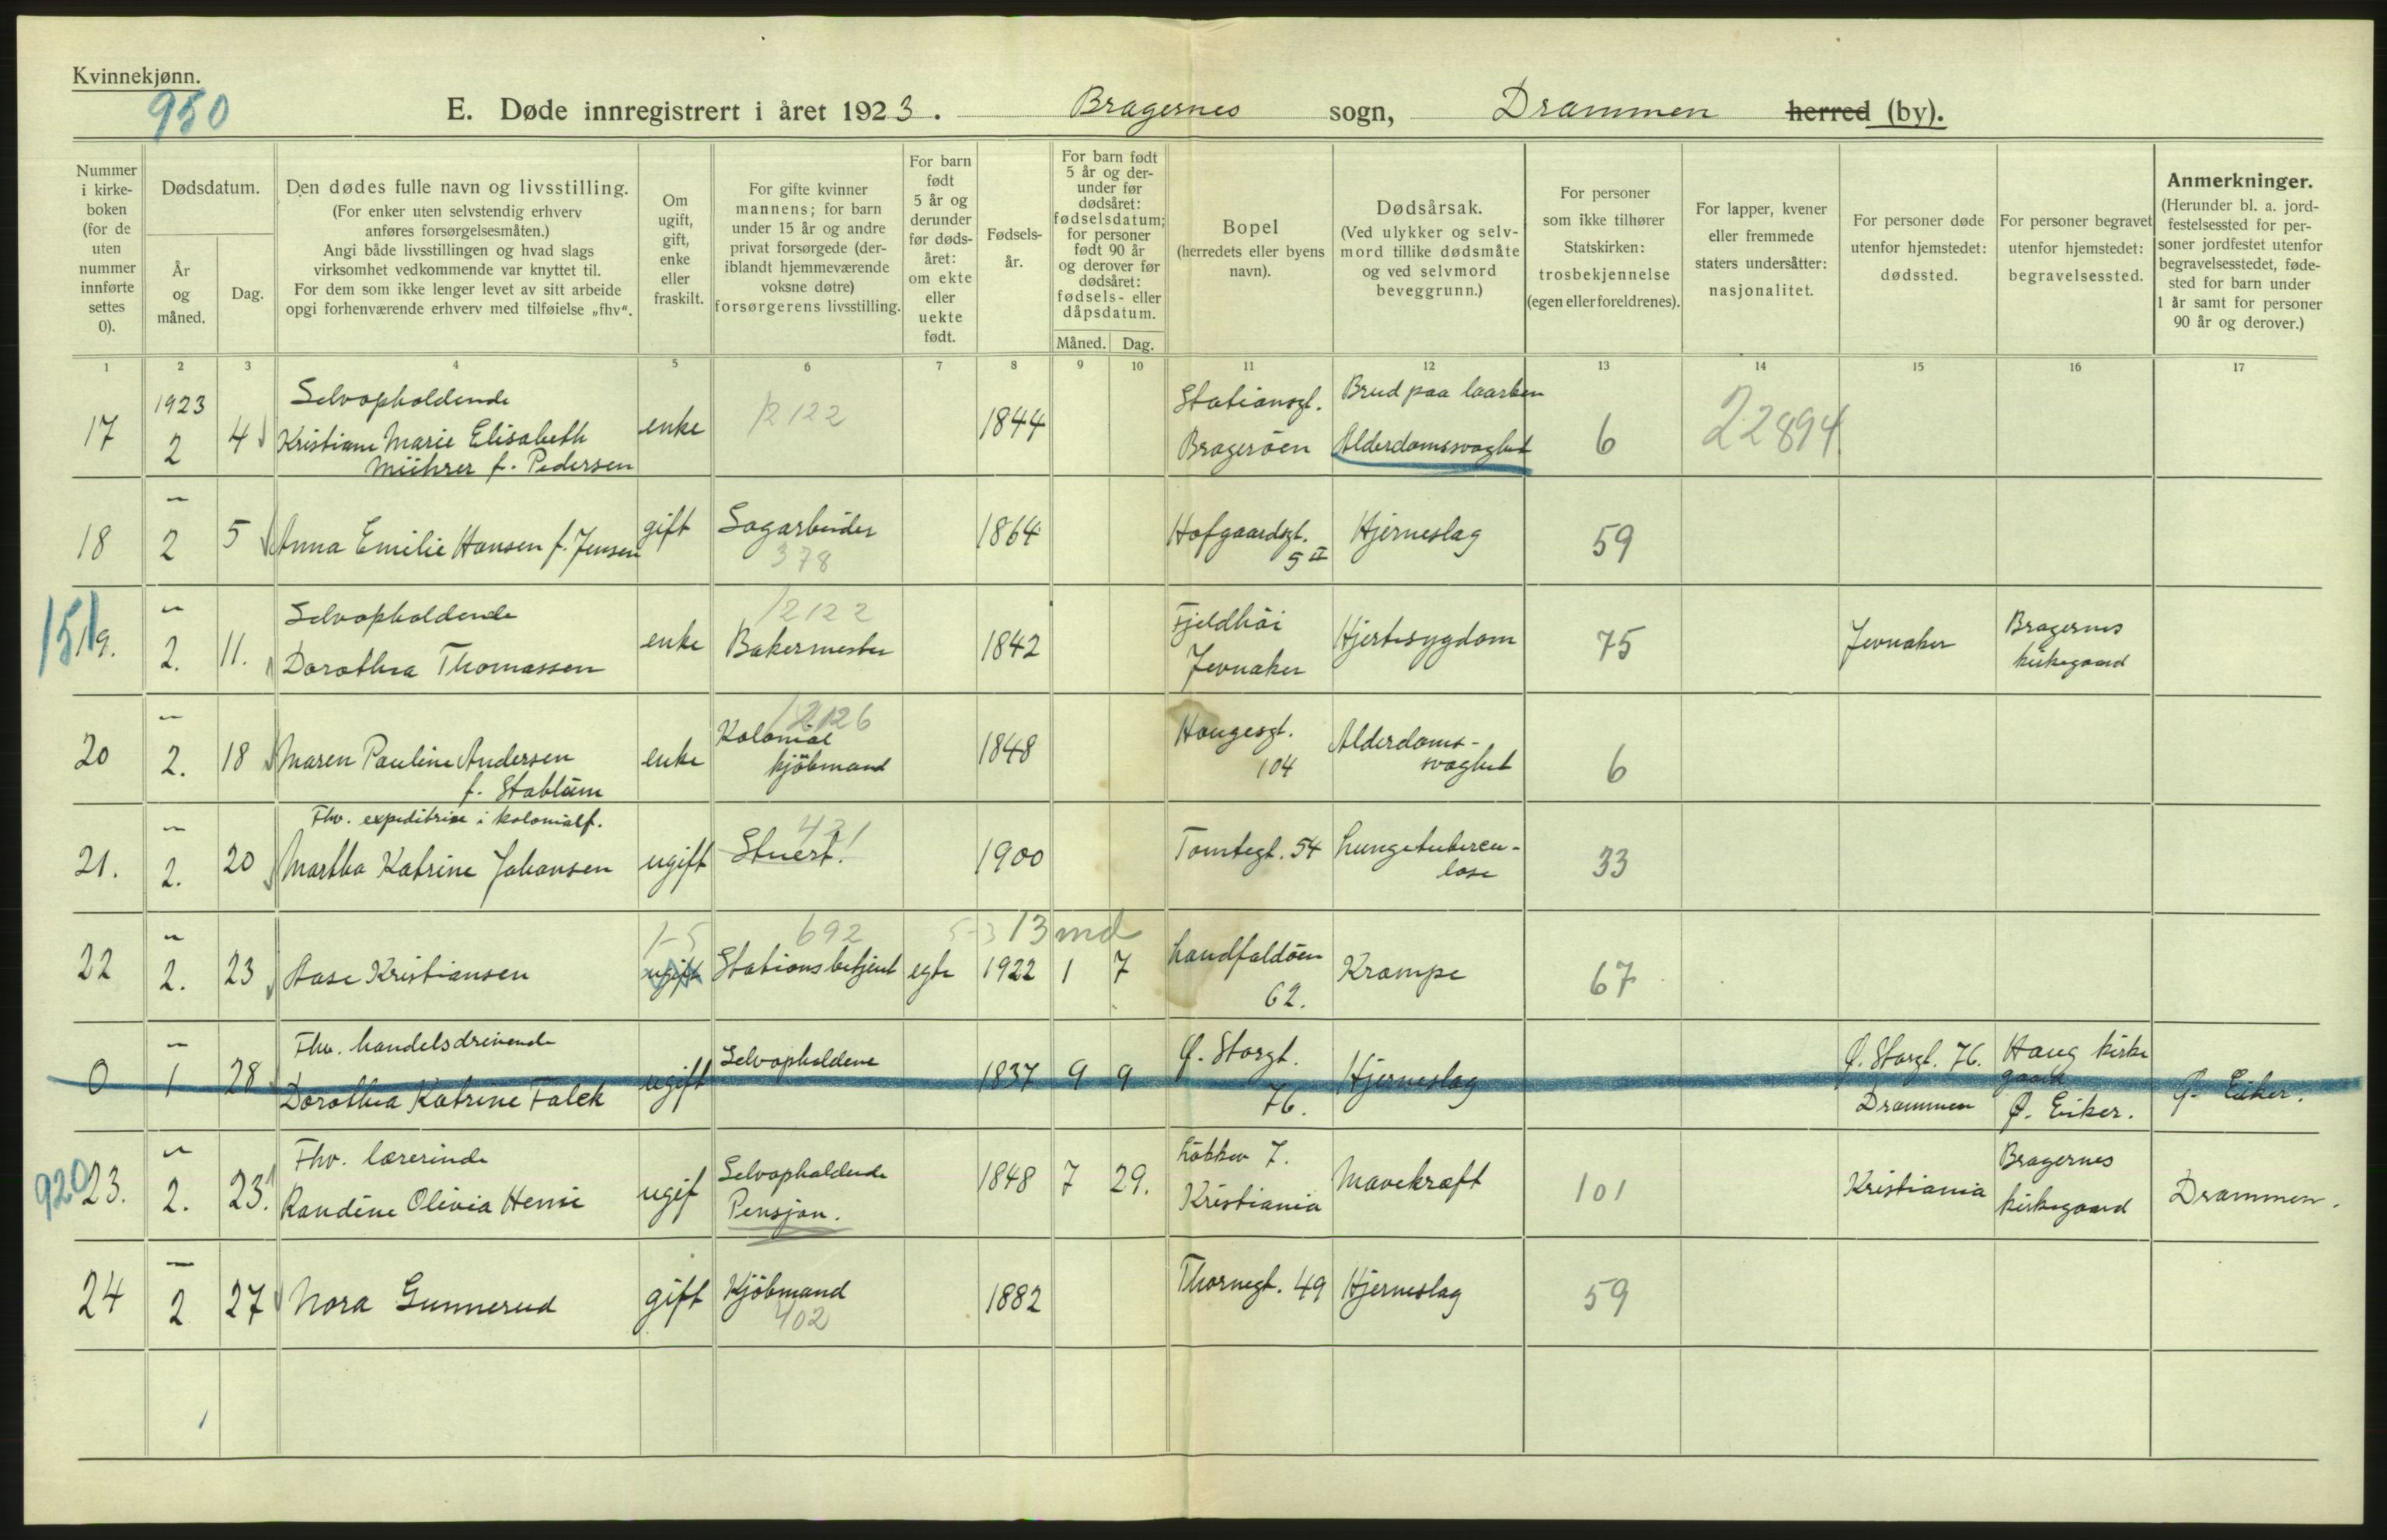 Kvinnekjønn.
950
E. Døde innregistrert i året 1923. Bragernes sogn, Drammen herred (by).
Nummer i kirke-boken (for de uten nummer innførte settes 0).
Dødsdatum.
År og måned.
Dag.
Den dødes fulle navn og livsstilling.
(For enker uten selvstendig erhverv
anføres forsørgelsesmåten.)
Angi både livsstillingen og hvad slags
virksomhet vedkommende var knyttet til.
For dem som ikke lenger levet av sitt arbeide
opgi forhenværende erhverv med tilføielse „fhv“.
Om ugift, gift, enke eller fraskilt.
For gifte kvinner
mannens; for barn
under 15 år og andre
privat forsørgede (der-
iblandt hjemmeværende
voksne døtre)
forsørgerens livsstilling.
For barn født 5 år og derunder før døds-året: om ekte eller uekte født.
Fødsels-år.
For barn født 5 år og der-under før dødsåret: fødselsdatum; for personer født 90 år og derover før dødsåret: fødsels- eller dåpsdatum.
Måned. Dag.
Bopel
(herredets eller byens
navn).
Dødsårsak.
(Ved ulykker og selv-
mord tillike dødsmåte
og ved selvmord
beveggrunn.)
For personer
som ikke tilhører
Statskirken:
trosbekjennelse
(egen eller foreldrenes).
For lapper, kvener
eller fremmede
staters undersåtter:
nasjonalitet.
For personer døde
utenfor hjemstedet:
dødssted.
For personer begravet
utenfor hjemstedet:
begravelsessted.
Anmerkninger.
(Herunder bl. a. jord-
festelsessted for per-
soner jordfestet utenfor
begravelsesstedet, føde-
sted for barn under
1 år samt for personer
90 år og derover.)
1 2 3 4 5 6 7 8 9 10 11 12 13 14 15 16 17
1923 Selvopholdende 12122 Stationsgt. Brud paa laarben
17 2 4 Kristiane Marie Elisabeth enke 1844 Bragerøen Alderdomssvaghet 6 22894
Mührer f. Pedersen
18 2 5 Anna Emilie Hansen f. Jensen gift Sagarbeider 1864 Hofgaardsgt. Hjerneslag 59
378 5 II
151 Selvopholdende 12122 Fjeldhöi Bragernes
19. 2. 11. Dorothea Thomassen enke Bakermester 1842 Jevnaker Hjertesygdom 75 Jevnaker kirkegaard
12126
20 2. 18 Maren Pauline Andersen enke Kolonial 1848 Haugesgt. Alderdoms- 6
f. Stablum kjöbmand 104 svaghet
Fhv. expeditrise i kolonialf. 421
21. 2. 20 Martha Katrine Johansen ugift Stuert. 1900 Tomtegt. 54 Lungetubercu- 33
lose
1-5 692 5-3 13 md
22 2. 23 Aase Kristiansen ugift Stationsbetjent egte 1922 1 7 Landfaldöen Krampe 67
62.
Fhv. handelsdrivende Selvopholdene Ø. Storgt. Ø. Storgt. 76. Haug kirke
0 1 28 Dorothea Katrine Falck ugift 1837 9 9 76. Hjerneslag Drammen gaard Ø. Eiker. Ø. Eiker.
920 Fhv. lærerinde Selvopholdende 7. Bragernes
23. 2. 23. Randine Olivia ugif Pensjon. 1848 7 29. Kristiania Mavekræft 101 Kristiania kirkegaard Drammen.
24 2 27 Nora Gunnerud gift Kjöbmand 1882 Thornegt. 49 Hjerneslag 59
402